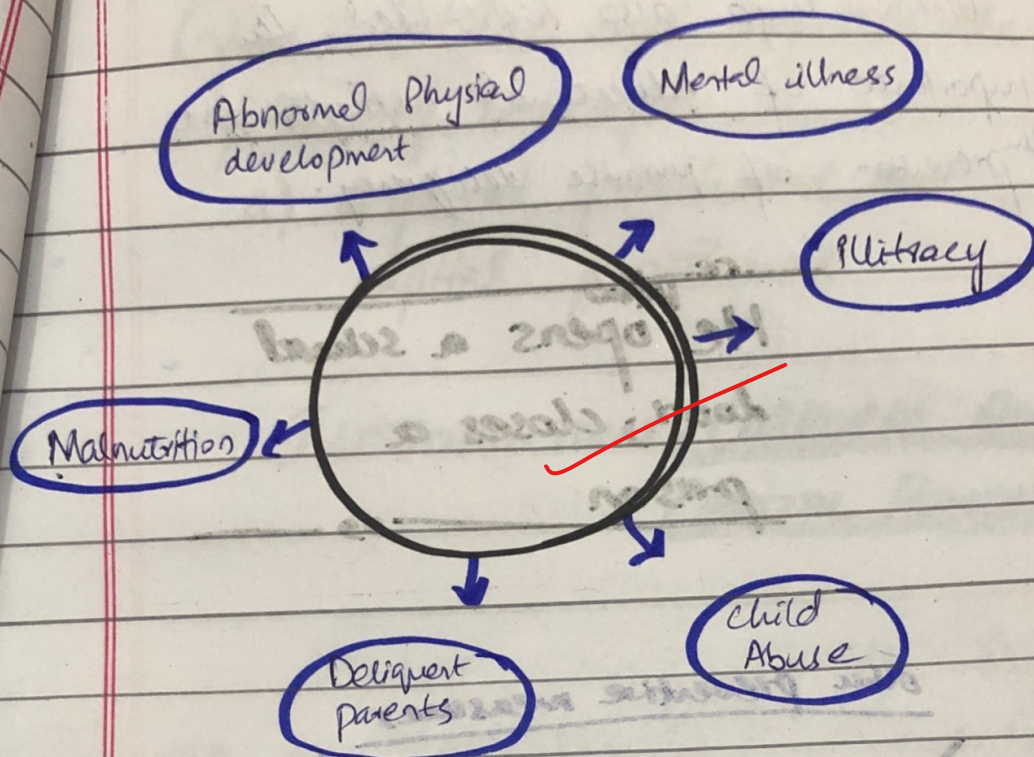 Abnormal Physical
development
Mental illness
illitracy
Malnutrition
Child
Abuse
Deliquent
parents